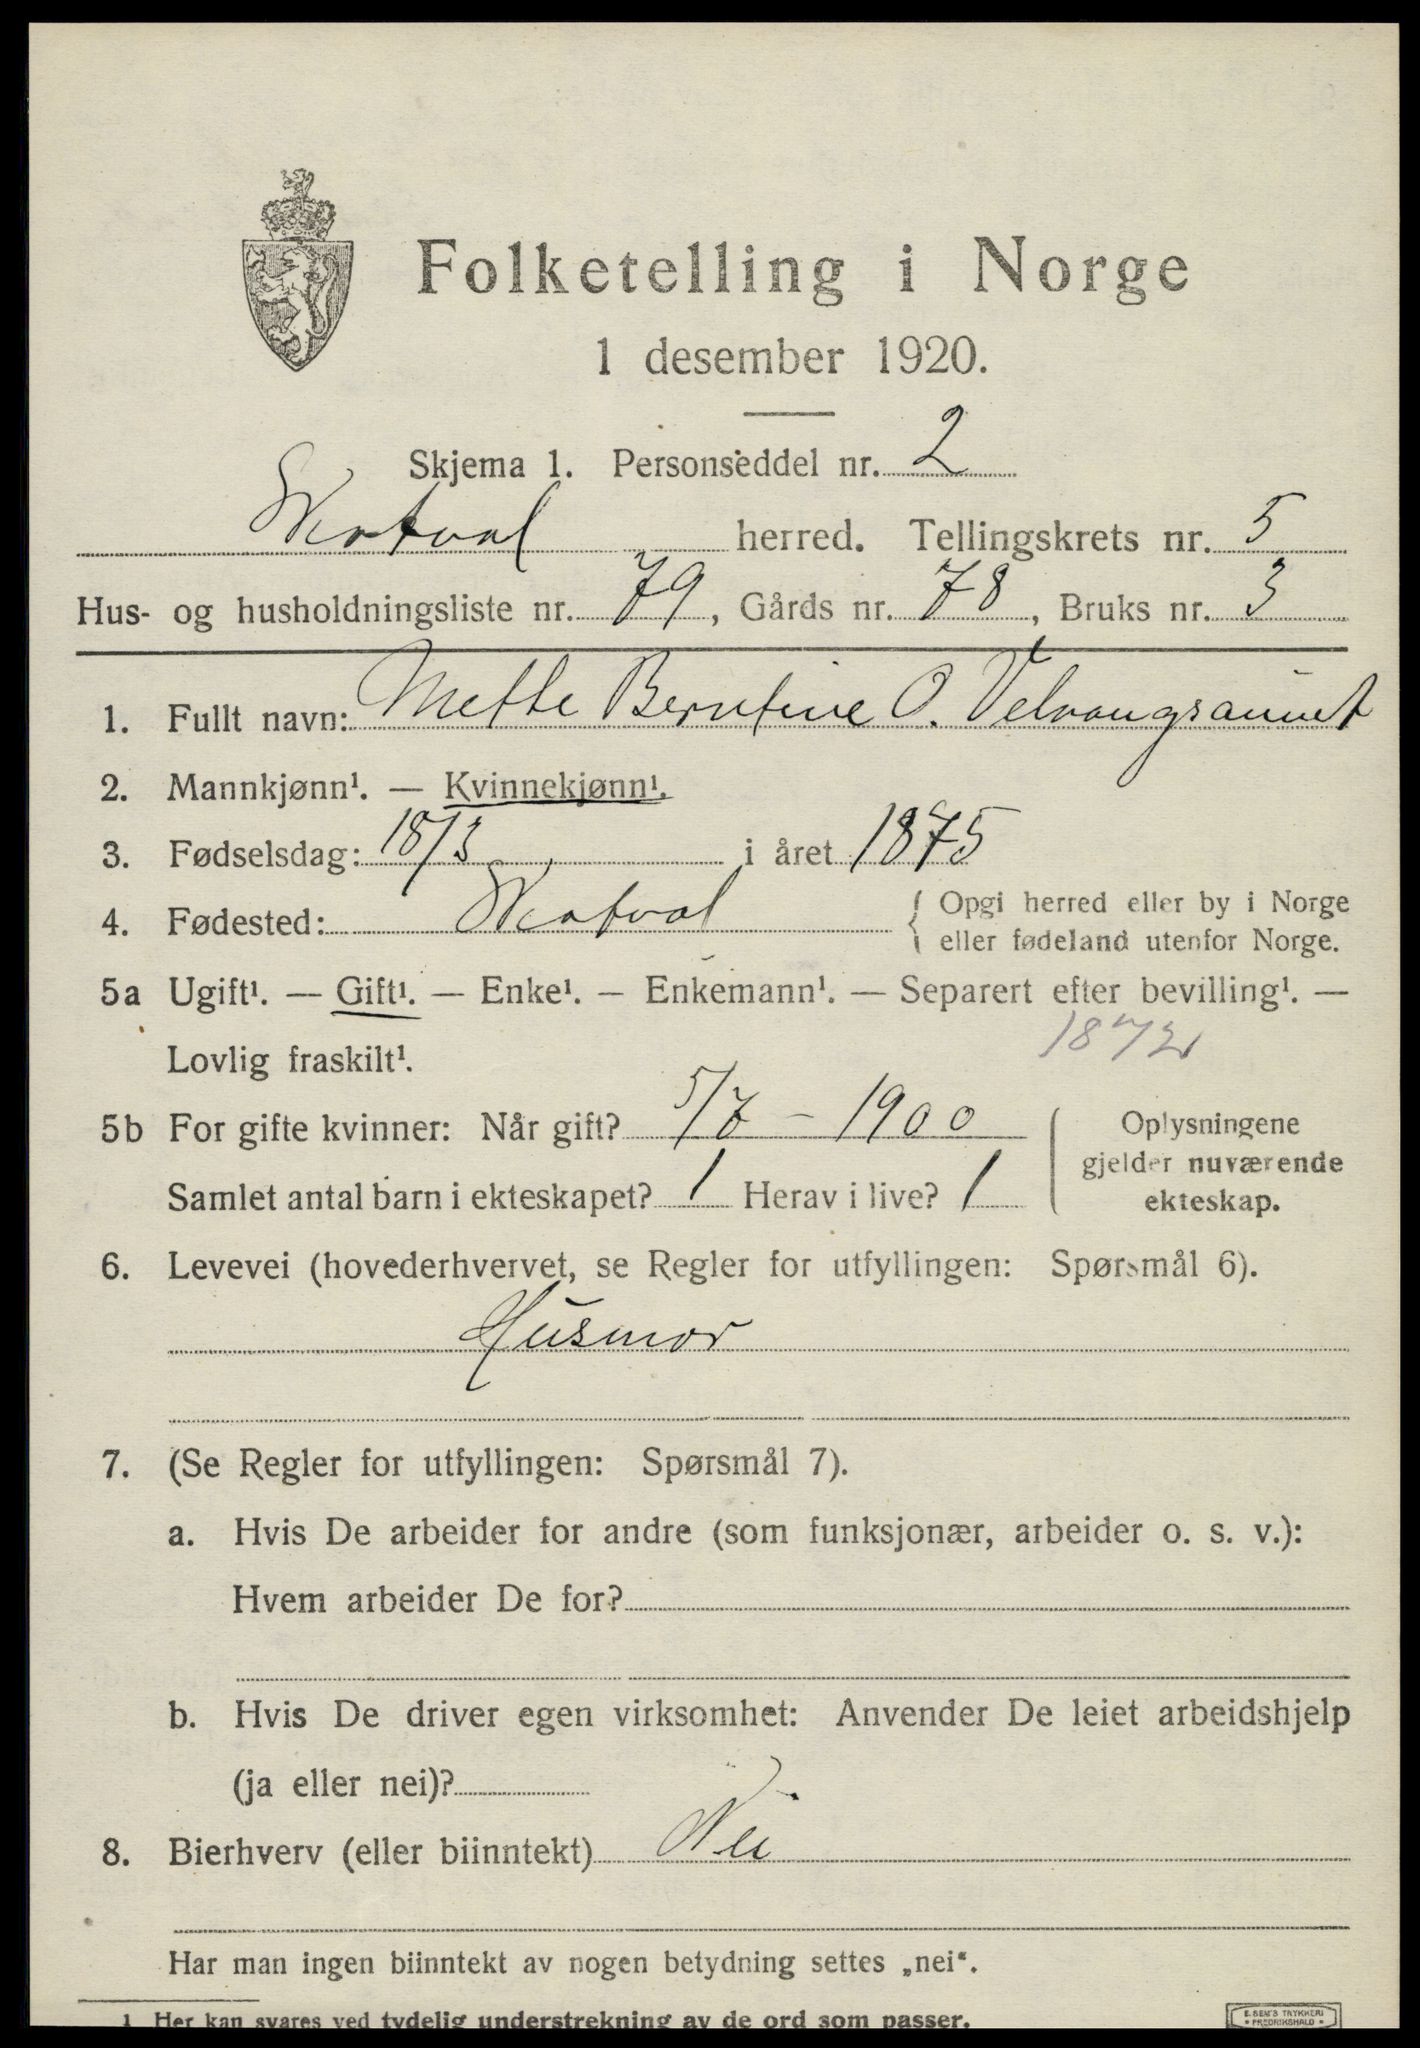 Folketelling i Norge
1 desember 1920.
Skjema 1. Personseddel nr. 2
Skatval herred. Tellingskrets nr. 5
Hus- og husholdningsliste nr. 79, Gårds nr. 78, Bruks nr. 3
1. Fullt navn: Mette Berntine O. Velvangsaunet
2. Mannkjønn¹. — Kvinnekjønn¹.
3. Fødselsdag: 18/3 i året 1875
4. Fødested: Skatval { Opgi herred eller by i Norge
eller fødeland utenfor Norge.
5a Ugift¹. — Gift¹. — Enke¹. — Enkemann¹. — Separert efter bevilling¹. —
Lovlig fraskilt¹.
5b For gifte kvinner: Når gift? 5/7 - 1900
Samlet antal barn i ekteskapet? 1 Herav i live? 1
Oplysningene
gjelder nuværende
ekteskap.
6. Levevei (hovederhvervet, se Regler for utfyllingen: Spørsmål 6).
Husmor
7. (Se Regler for utfyllingen: Spørsmål 7).
a. Hvis De arbeider for andre (som funksjonær, arbeider o. s. v.):
Hvem arbeider De for?
b. Hvis De driver egen virksomhet: Anvender De leiet arbeidshjelp
(ja eller nei)?
8. Bierhverv (eller biinntekt) Nei
Har man ingen biinntekt av nogen betydning settes „nei“.
1 Her kan svares ved tydelig understrekning av de ord som passer.
E. SEM'S TRYKKERI
• FREDRIKSHALD •